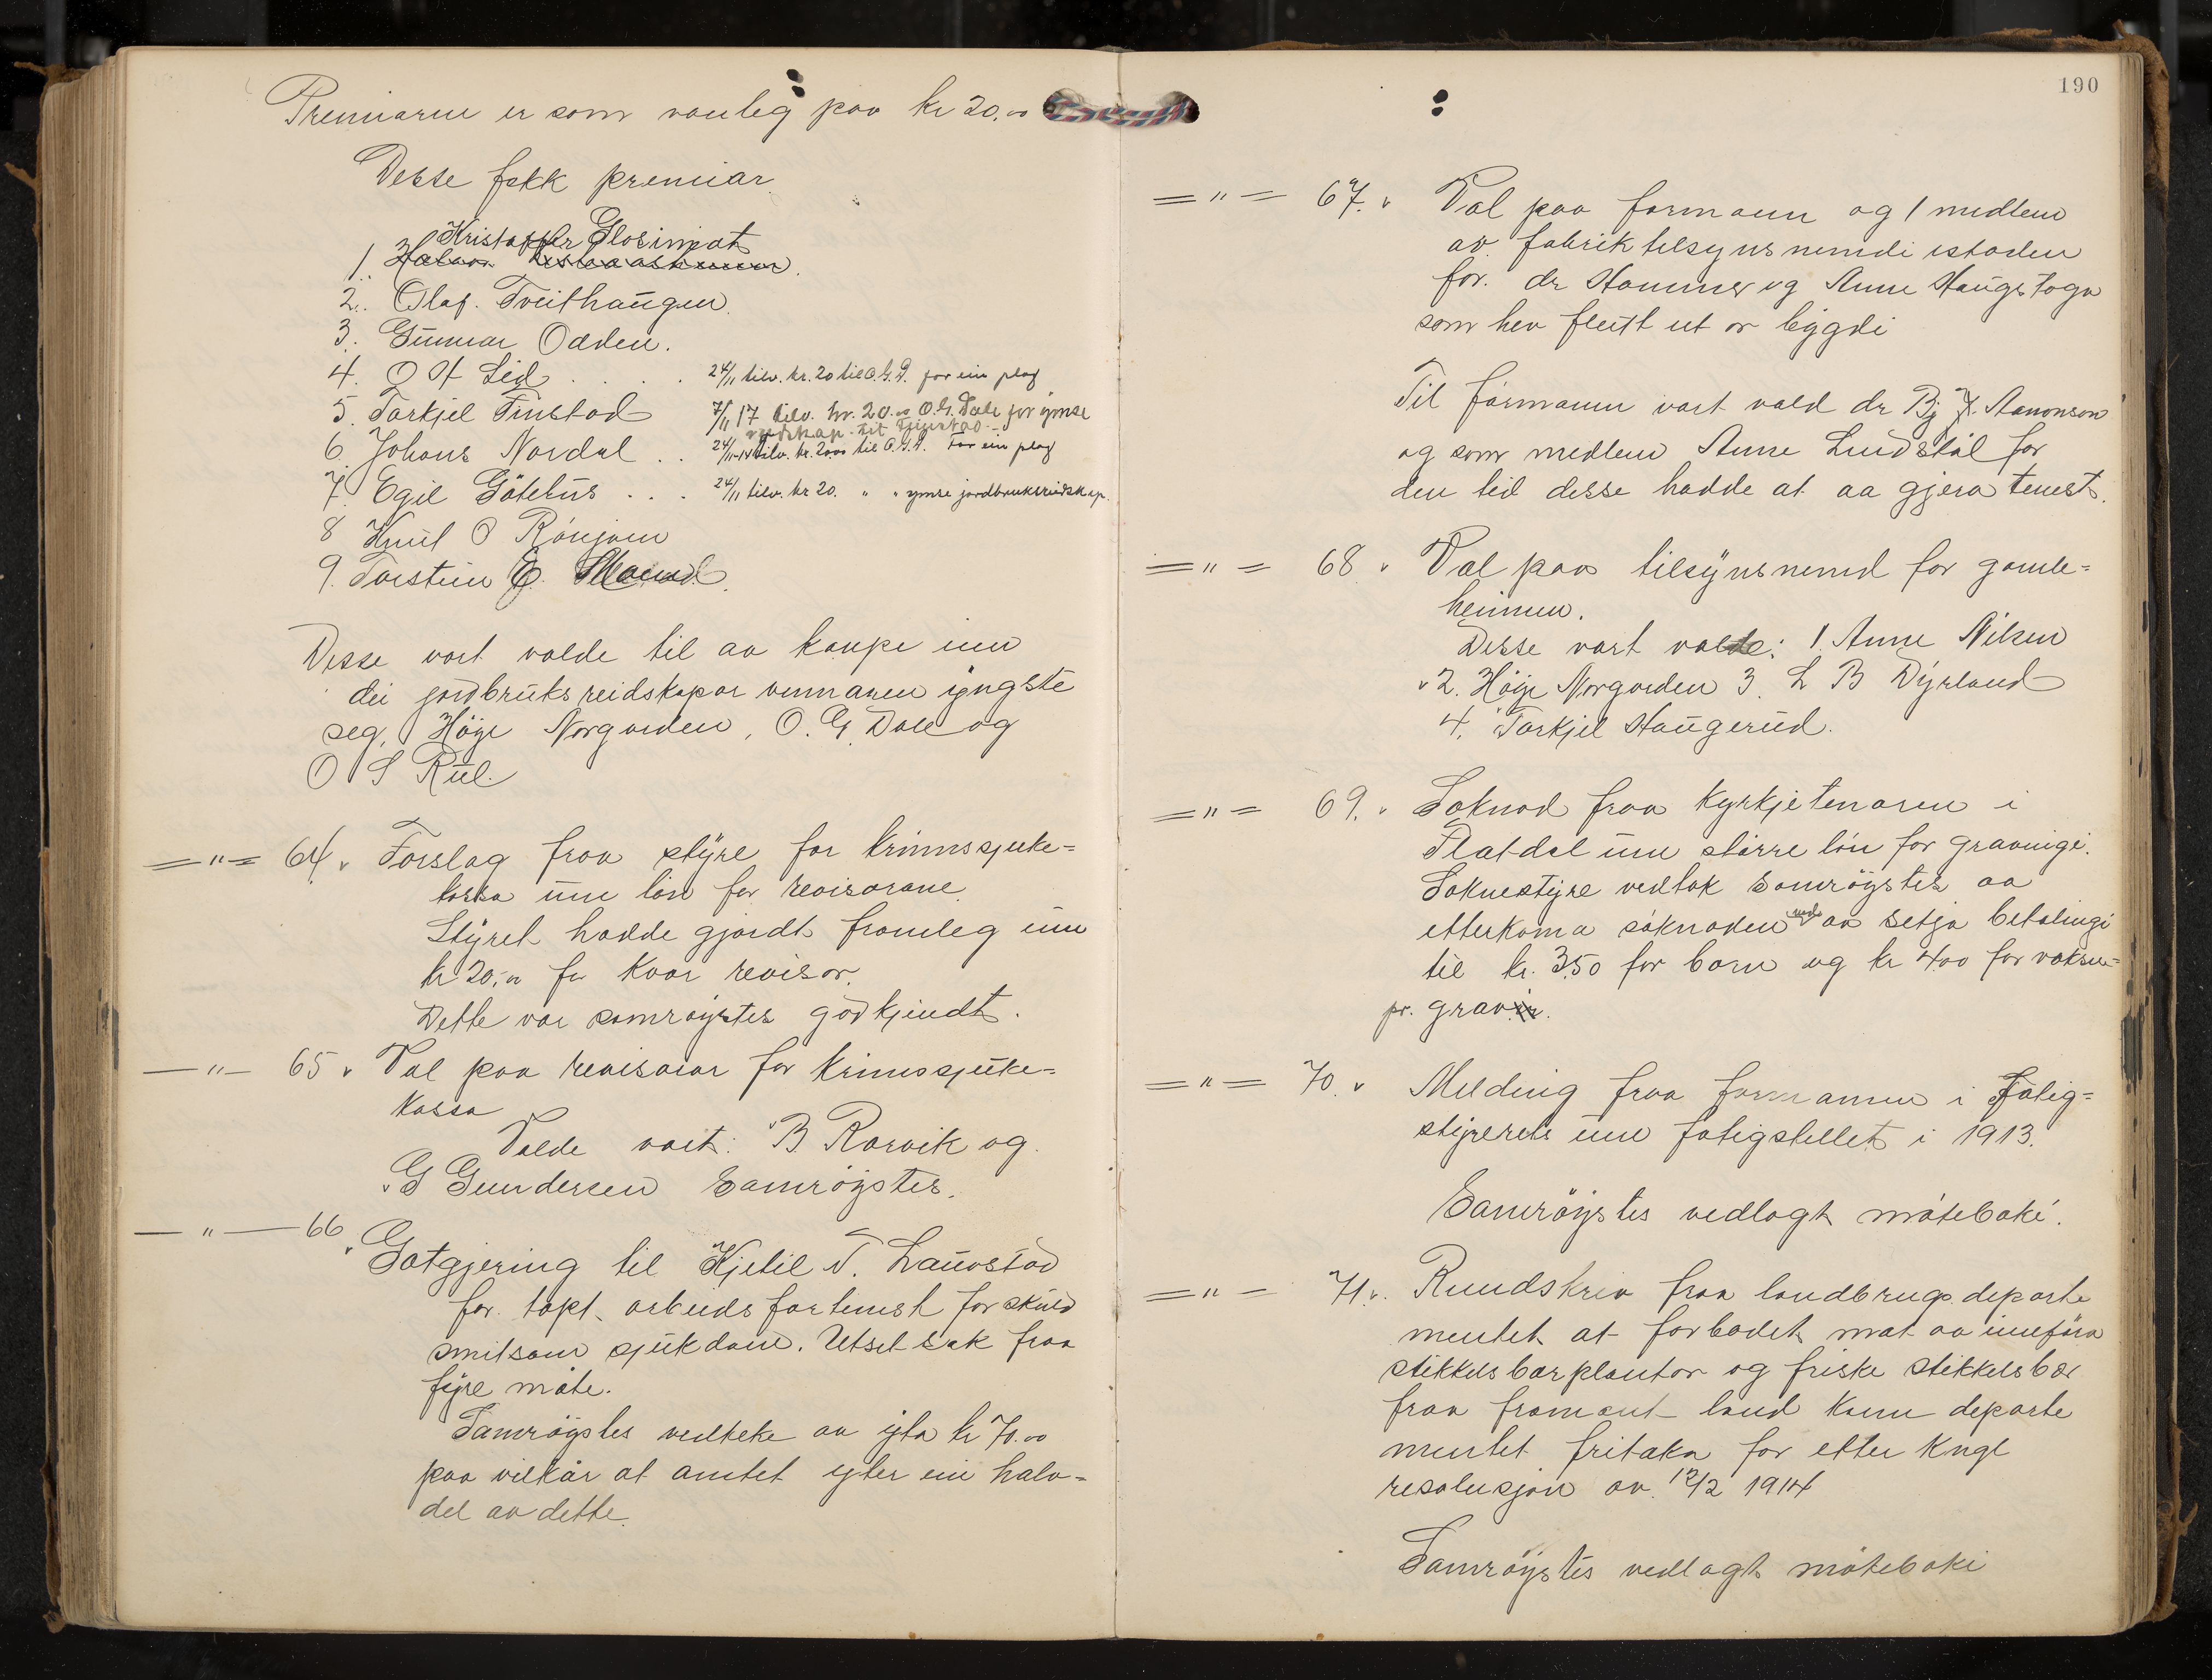 Premiarne er som vanleg paa kr 20.00
Desse fekk premiar
Kristoffer Glosimot
1. Halvor
2. Olaf. Tveithaugen.
3. Gunnar Odden.
4. O H Lid . . . . 24/11 tilv. kr. 20 til O. G. D. for ein plog
5. Torkjel Finstad 7/11 17 tilv. kr. 20.00 O. G. Dale for ymse
reidskap til Finstad
6. Johans Nordal . . 24/11-14 tilv. kr. 20.00 til O. G. D. For ein plog
7. Egil Götehus . . . 24/11 tilv. kr 20. " " ymse jordbruksreidskap.
8 Knut O Rönjom
9. Torstein
Desse vart valde til aa kaupe inn
dei jordbruksreidskapar vinnaren yngste
seg, Höije Norgarden, O. G. Dale og
O S Rui.
="= 64. Forslag fraa styre for krinssjuke=
kassa um lön for revisorane.
Styret hadde gjordt framleg um
kr 20,00 for kvar revisor.
Dette var samröystes godkjendt.
—"— 65 Val paa revisorar for krinssjuke=
kassa
Valde vart: B Rorvik og
G Gundersen Samröystes.
—"— 66
Gotgjering til Kjetil T. Lauvstad
for tapt arbeidsfortenest for skuld
smitsom sjukdom. Utset sak fraa
fyre möte.
Samröystes vedteke aa yta kr 70.00
paa vilkår at amtet yter ein halv=
del av dette.
190
="= 67. Val paa formann og 1 medlem
av fabriktilsynsnemdi istaden
for dr Hammer og Anne Haugstoga
som hev flutt ut or bygdi
Til formann vart vald dr Bj Aanonson
og som medlem Anne Lindstöl for
den tid desse hadde at aa gjera tenest.
="= 68 Val paa tilsynsnemd for gamle=
heimen.
Desse vart valde: 1. Anne Nilsen
2. Höije Norgarden 3. L B Dyrland
4. Torkjel Haugerud.
="= 69. Söknad fraa kyrkjetenaren i
Flatdal um större lön for gravingi.
Soknestyre vedtok samröystes aa
etterkoma söknaden med aa setja betalingi
til kr. 3.50 for born og kr 4.00 for voksne
pr. grav.
="= 70. Melding fraa formannen i Fatig=
styrerets um fatigstellet i 1913.
Samröystes vedlagt möteboki.
="= 71. Rundskriv fraa landbrugsdeparte
mentet at forbodet mot aa innföra
stikkelsbærplantor og friske stikkelsbær
fraa framant land kann departe
mentet fritaka for etter kngl
resolusjon av 12/2 1914
Samröystes vedlagt möteboki